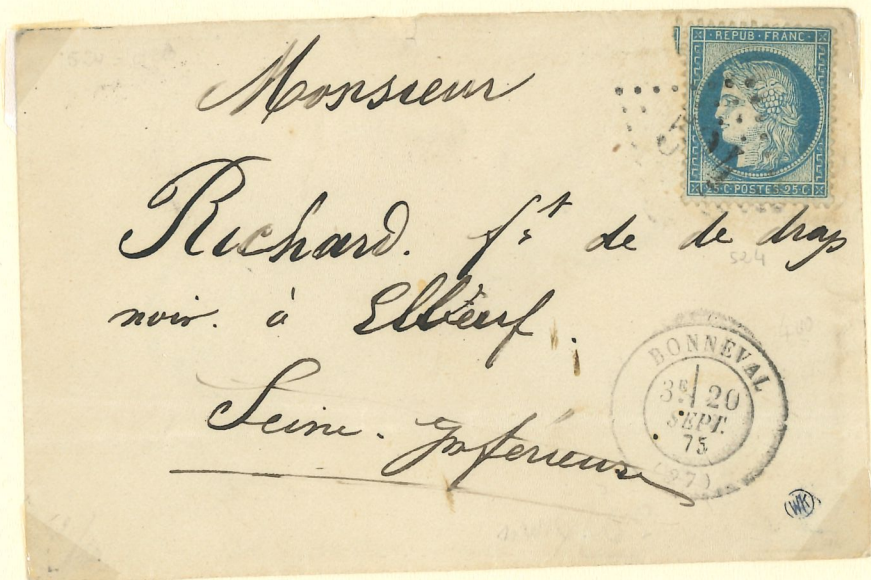 REPUB · FRANC ·
25 C · POSTES · 25 C
524
Monsieur
Richard. fˢᵗ de de drap
524
noir. à Elbeuf.
Seine-Inférieure
BONNEVAL
3ᴱ 20
SEPT.
75
(27)
WK